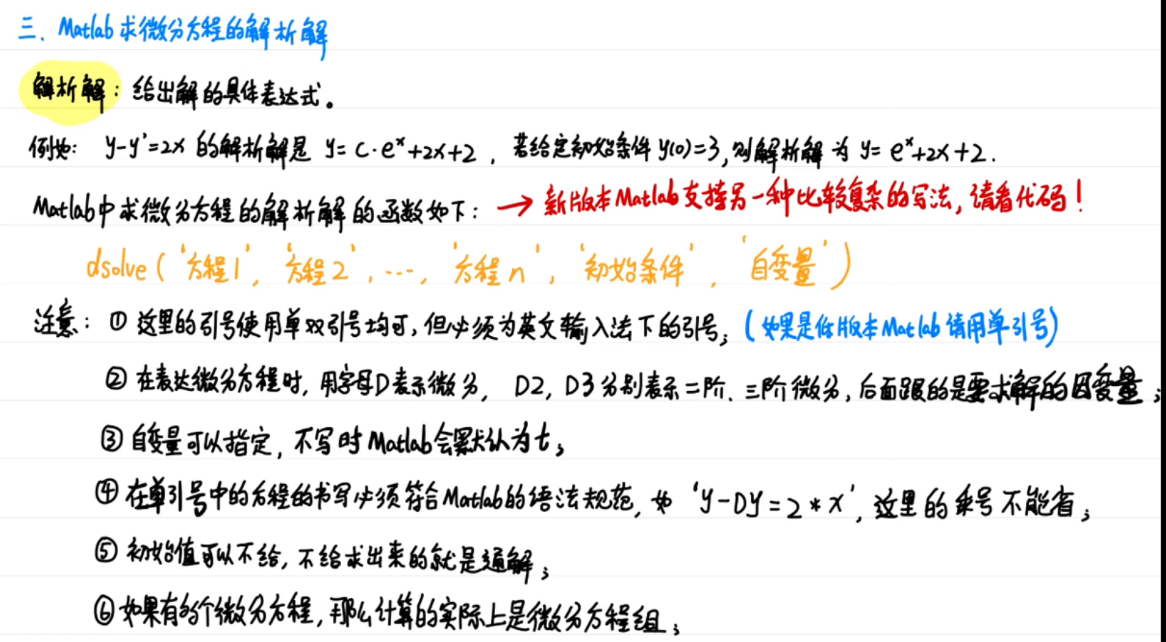 三、Matlab求微分方程的解析解
解析解：给出解的具体表达式。
例如： y-y'=2x 的解析解是 y= c·eˣ+2x+2 ，若给定初始条件 y(0)=3，则解析解为 y= eˣ+2x+2.
Matlab中求微分方程的解析解的函数如下： → 新版本Matlab支持另一种比较复杂的写法，请看代码！
dsolve ( '方程1', '方程2', ···, '方程n', '初始条件', '自变量' )
注意： ① 这里的引号使用单双引号均可，但必须为英文输入法下的引号；(如果是低版本Matlab请用单引号)
② 在表达微分方程时，用字母D表示微分， D2, D3分别表示二阶、三阶微分，后面跟的是要求解的因变量；
③ 自变量可以指定，不写时Matlab会默认为t；
④ 在单引号中的方程的书写必须符合Matlab的语法规范，如 'y-Dy=2*x'，这里的乘号不能省；
⑤ 初始值可以不给，不给求出来的就是通解；
⑥ 如果有多个微分方程，那么计算的实际上是微分方程组；